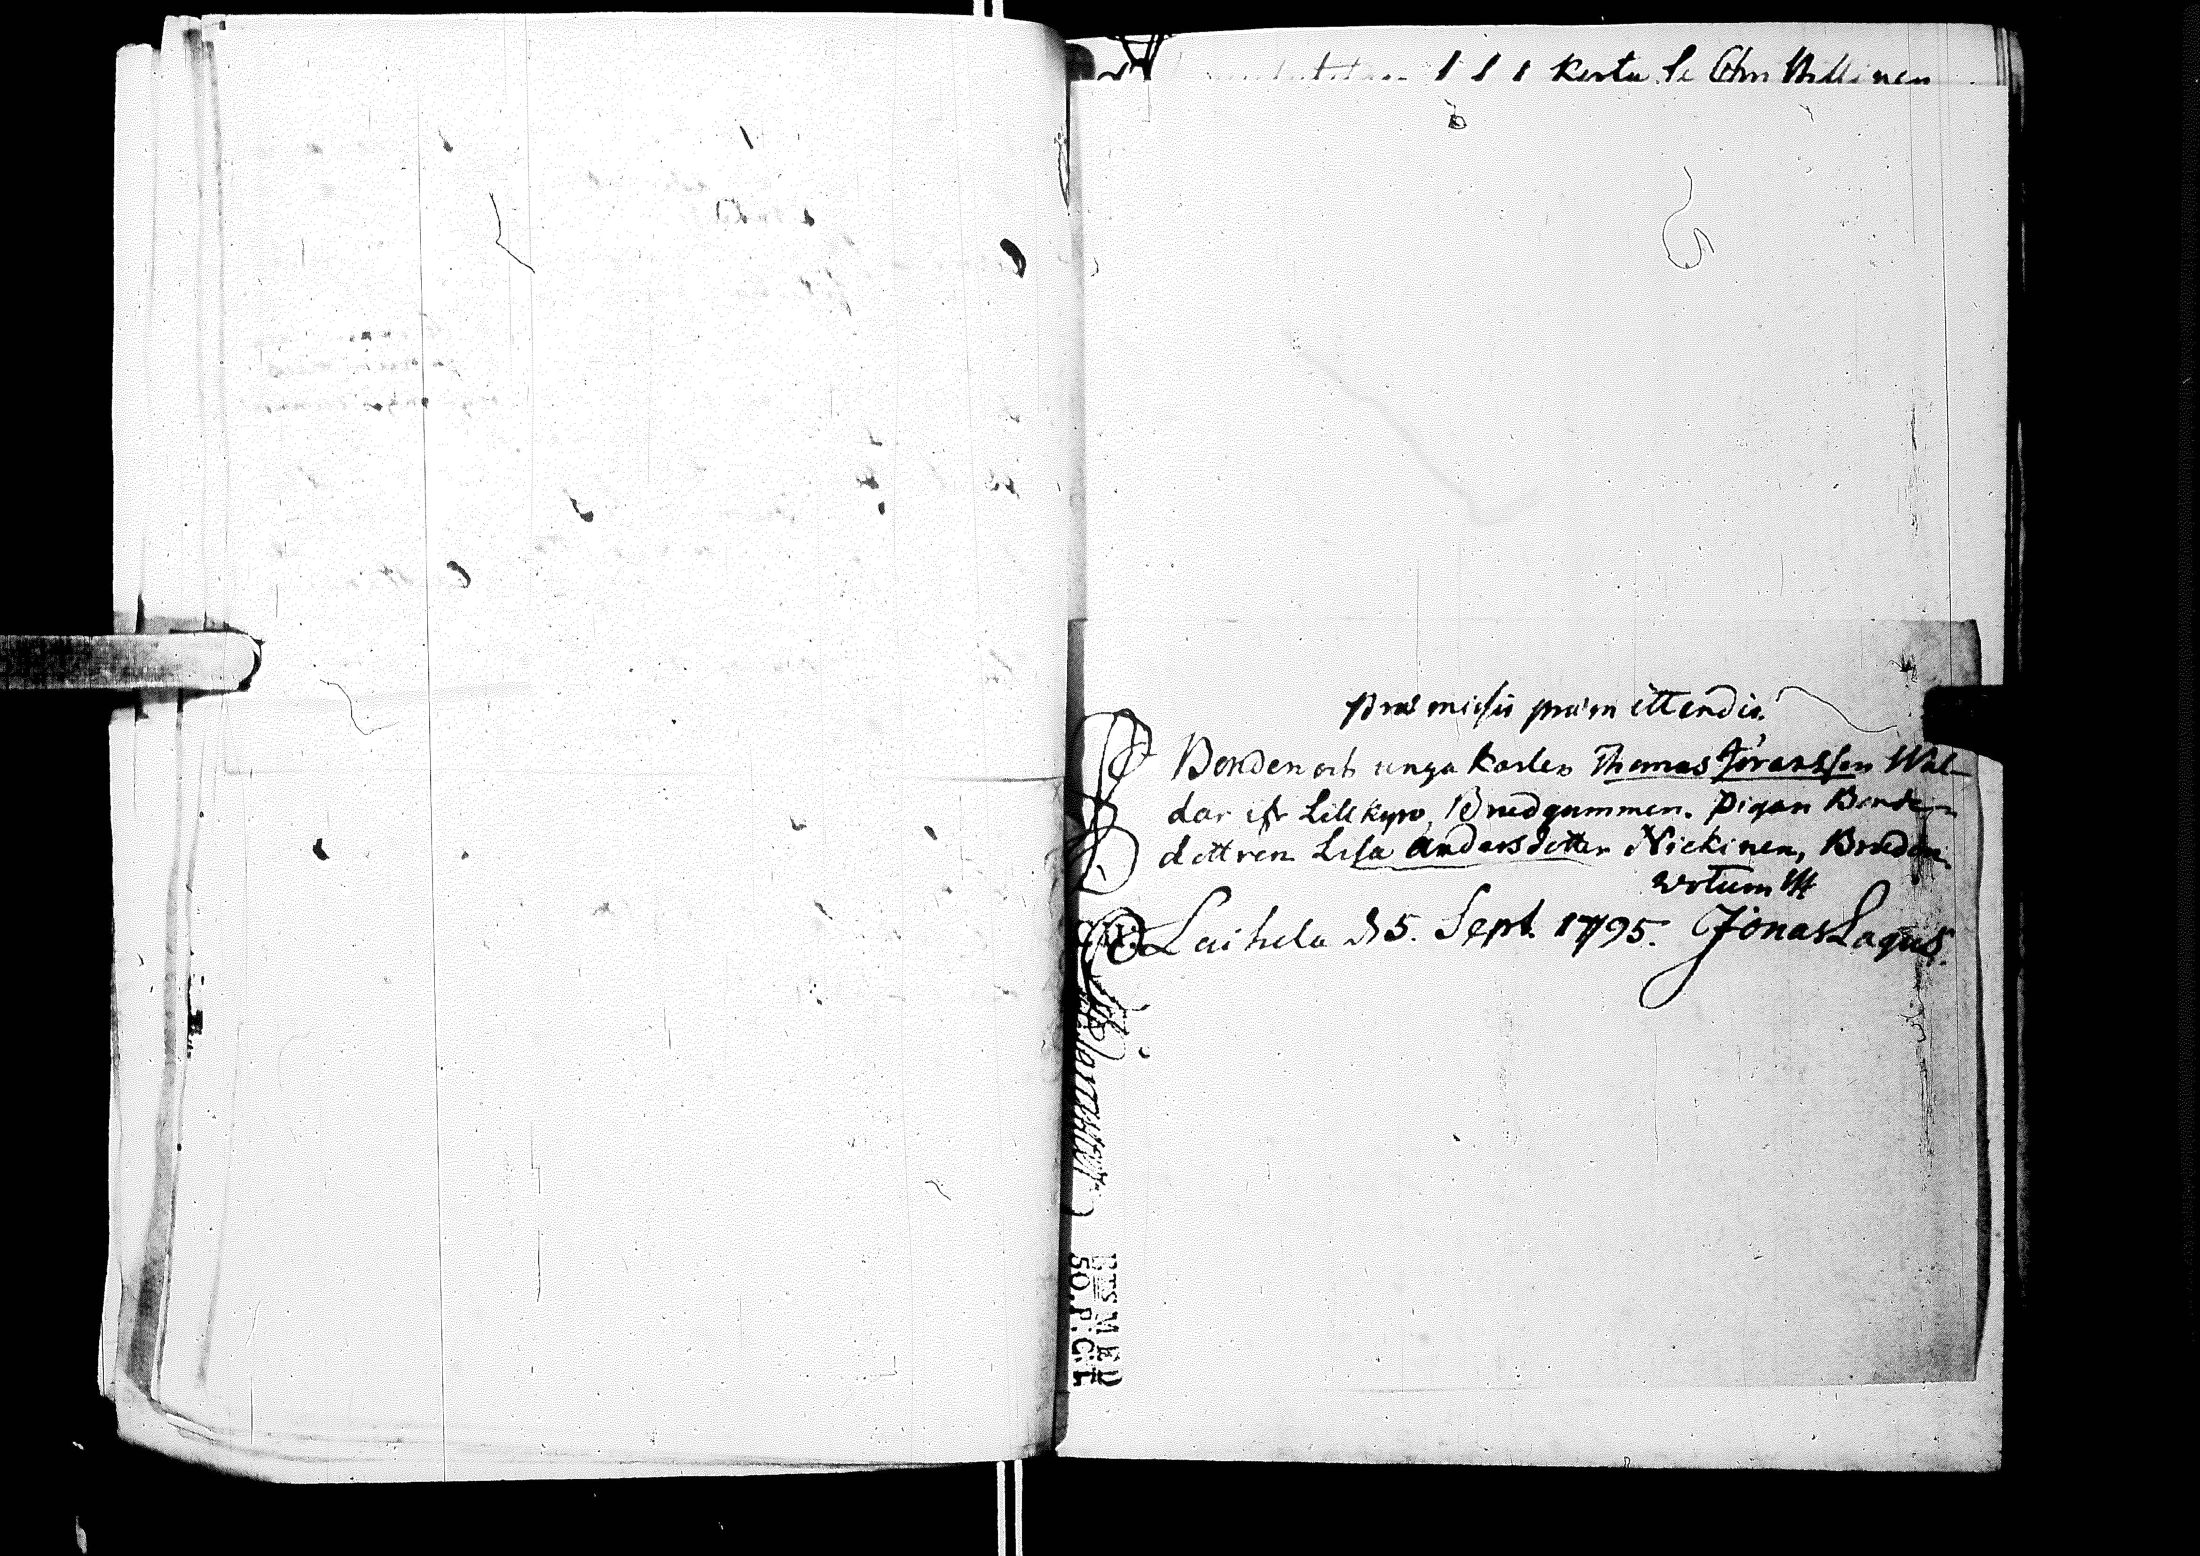 1 1 1 Kertu
præmissis præmittendis
Bonden och unga Karlen Thomas Jöransson Wal-
dar ifr Lillkyro, Brudgummen. Pigan Bonde-
dottren Lisa Andersdotter Nickinen, Bruden.
votum
Laihela d 5. Sept. 1795. Jonas Lagus.